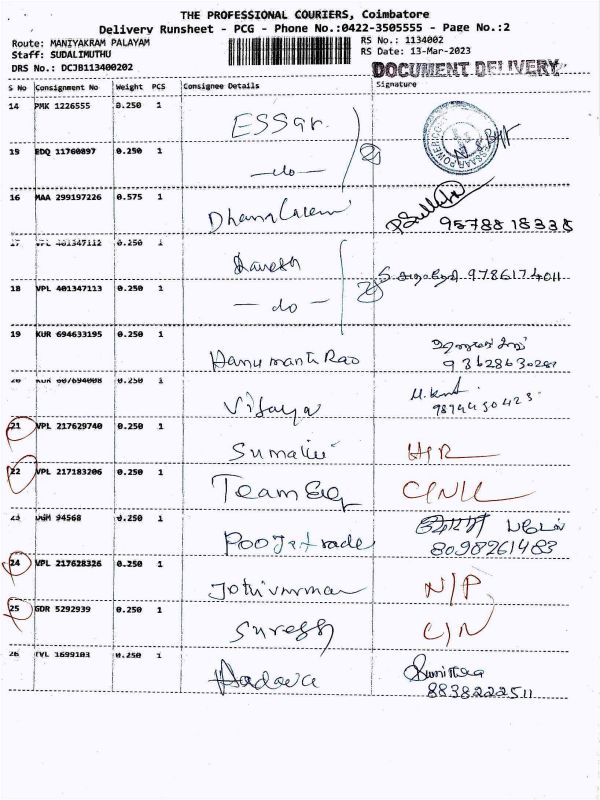 THE PROFESSIONAL COURIERS, Coimbatore
Delivery Runsheet - PCG - Phone No.:0422-3505555 - Page No.:2
Route: MANIYAKRAM PALAYAM
Staff: SUDALIMUTHU
DRS No.: DCJB113400202
RS No.: 1134002
RS Date: 13-Mar-2023
DOCUMENT DELIVERY
S No Consignment No Weight PCS Consignee Details Signature
14 PMK 1226555 0.250 1 ESSar
15 EDQ 11760897 0.250 1 —do—
16 MAA 299197226 0.575 1 9578818338
17 VPL 401347112 0.250 1 9786174011
18 VPL 401347113 0.250 1 — do —
19 KUR 694633195 0.250 1 Hanumanth Rao
20 KUR 607694008 0.250 1 Vijaya
21 VPL 217629740 0.250 1
22 VPL 217183206 0.250 1 Team
23 DGM 94568 0.250 1 Pooja trade 8098261483
24 VPL 217628326 0.250 1 N/P
25 GDR 5292939 0.250 1 Suresh
26 TVL 1699103 0.250 1 8838222511